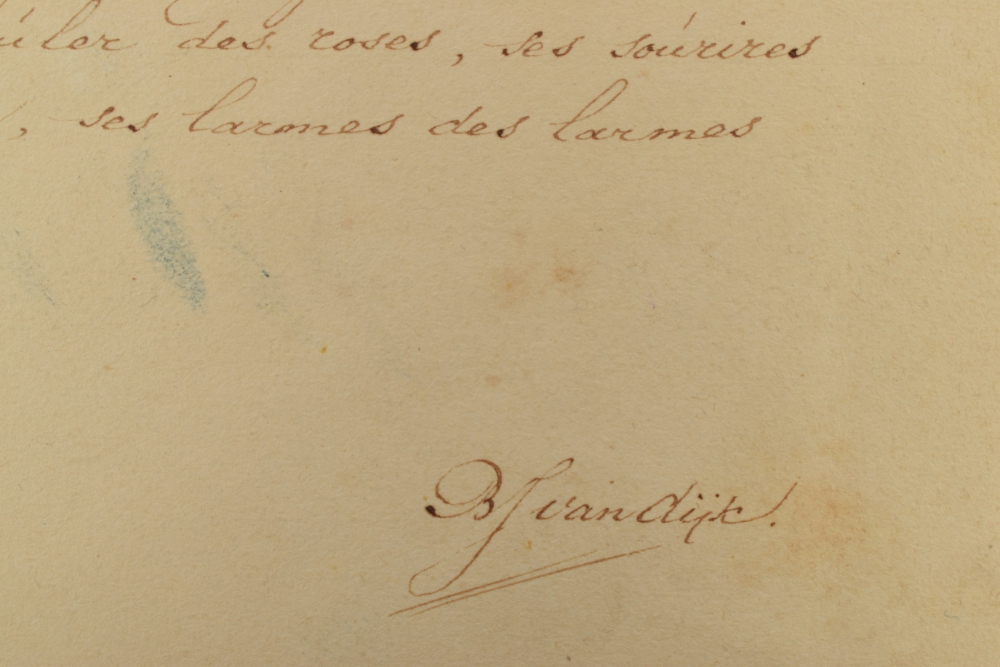 des roses, ses soúrires
, ses larmes des larmes
BJ van Dijk.